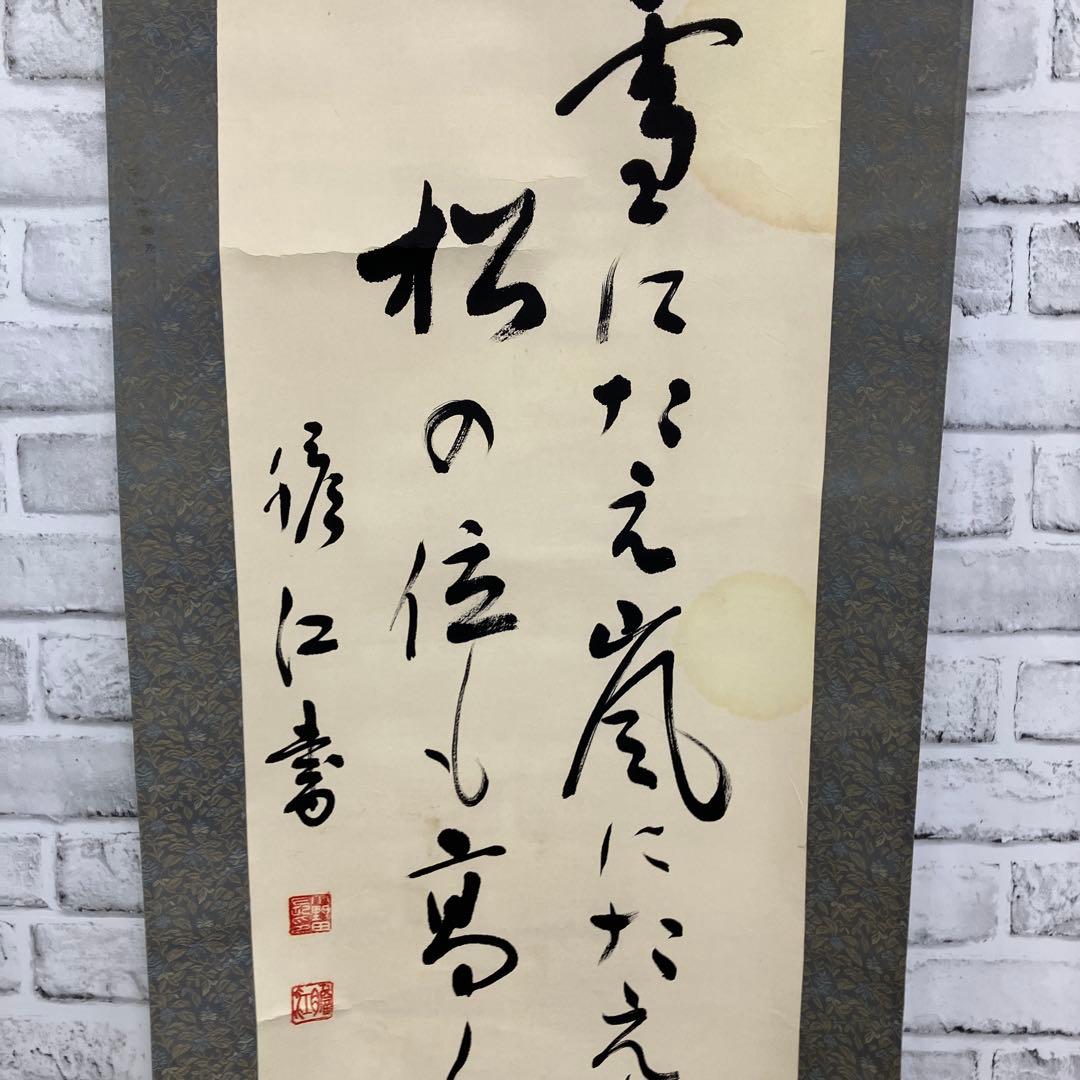 雪にたえ嵐にたえ
松の位も高
江書